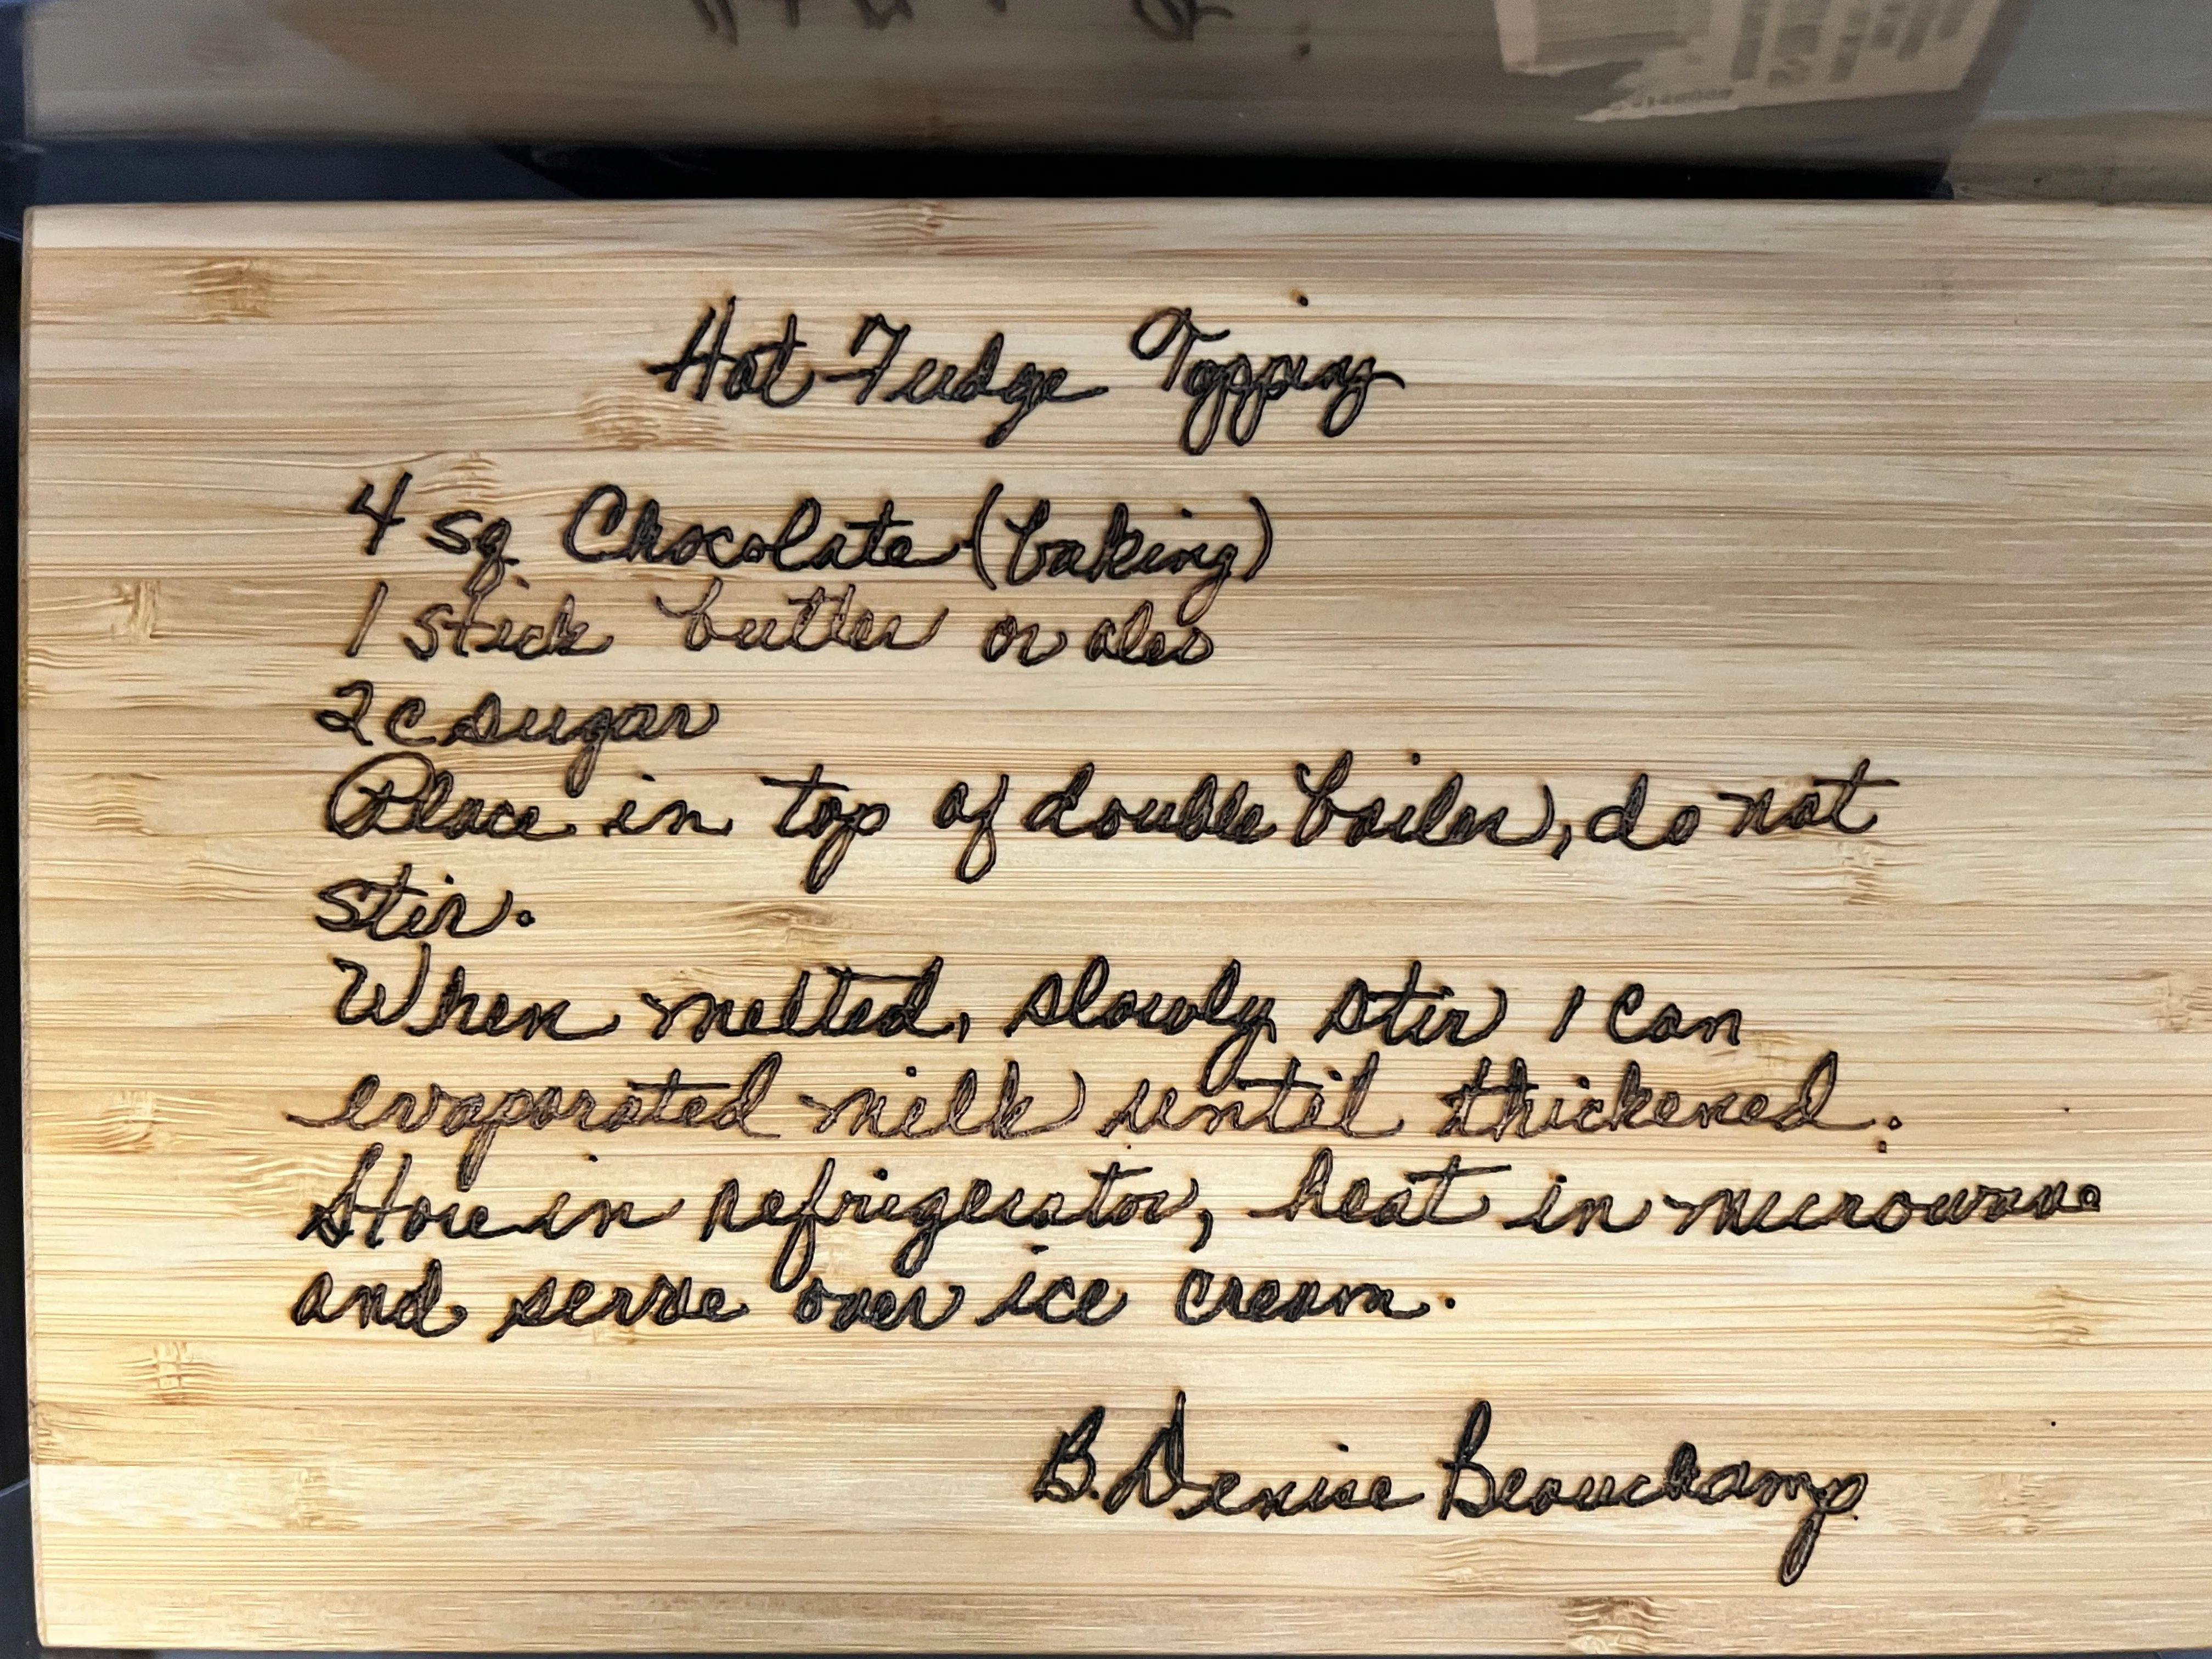 Hot Fudge Topping
4 sq. Chocolate (baking)
1 stick butter or oleo
2 c sugar
Place in top of double boiler, do not
stir.
When melted, slowly stir 1 can
evaporated milk until thickened.
Store in refrigerator, heat in microwave
and serve over ice cream.
B. Denise Beauchamp